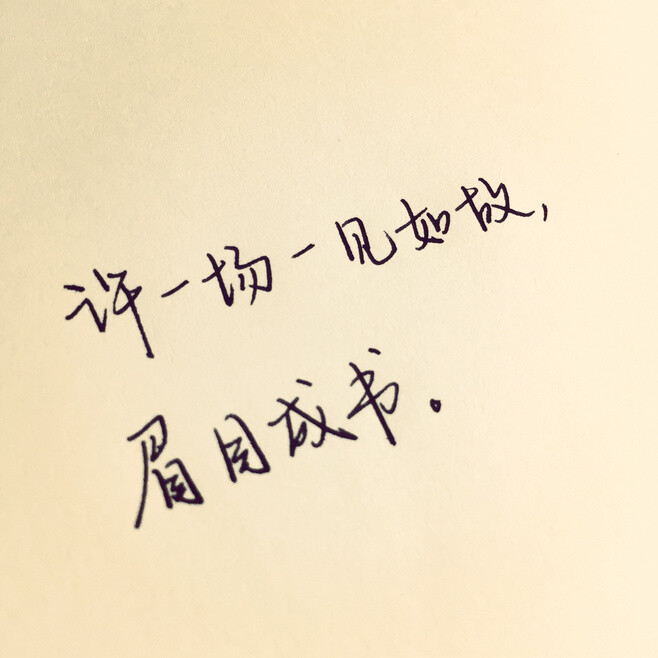 许一场一见如故，
眉目成书.